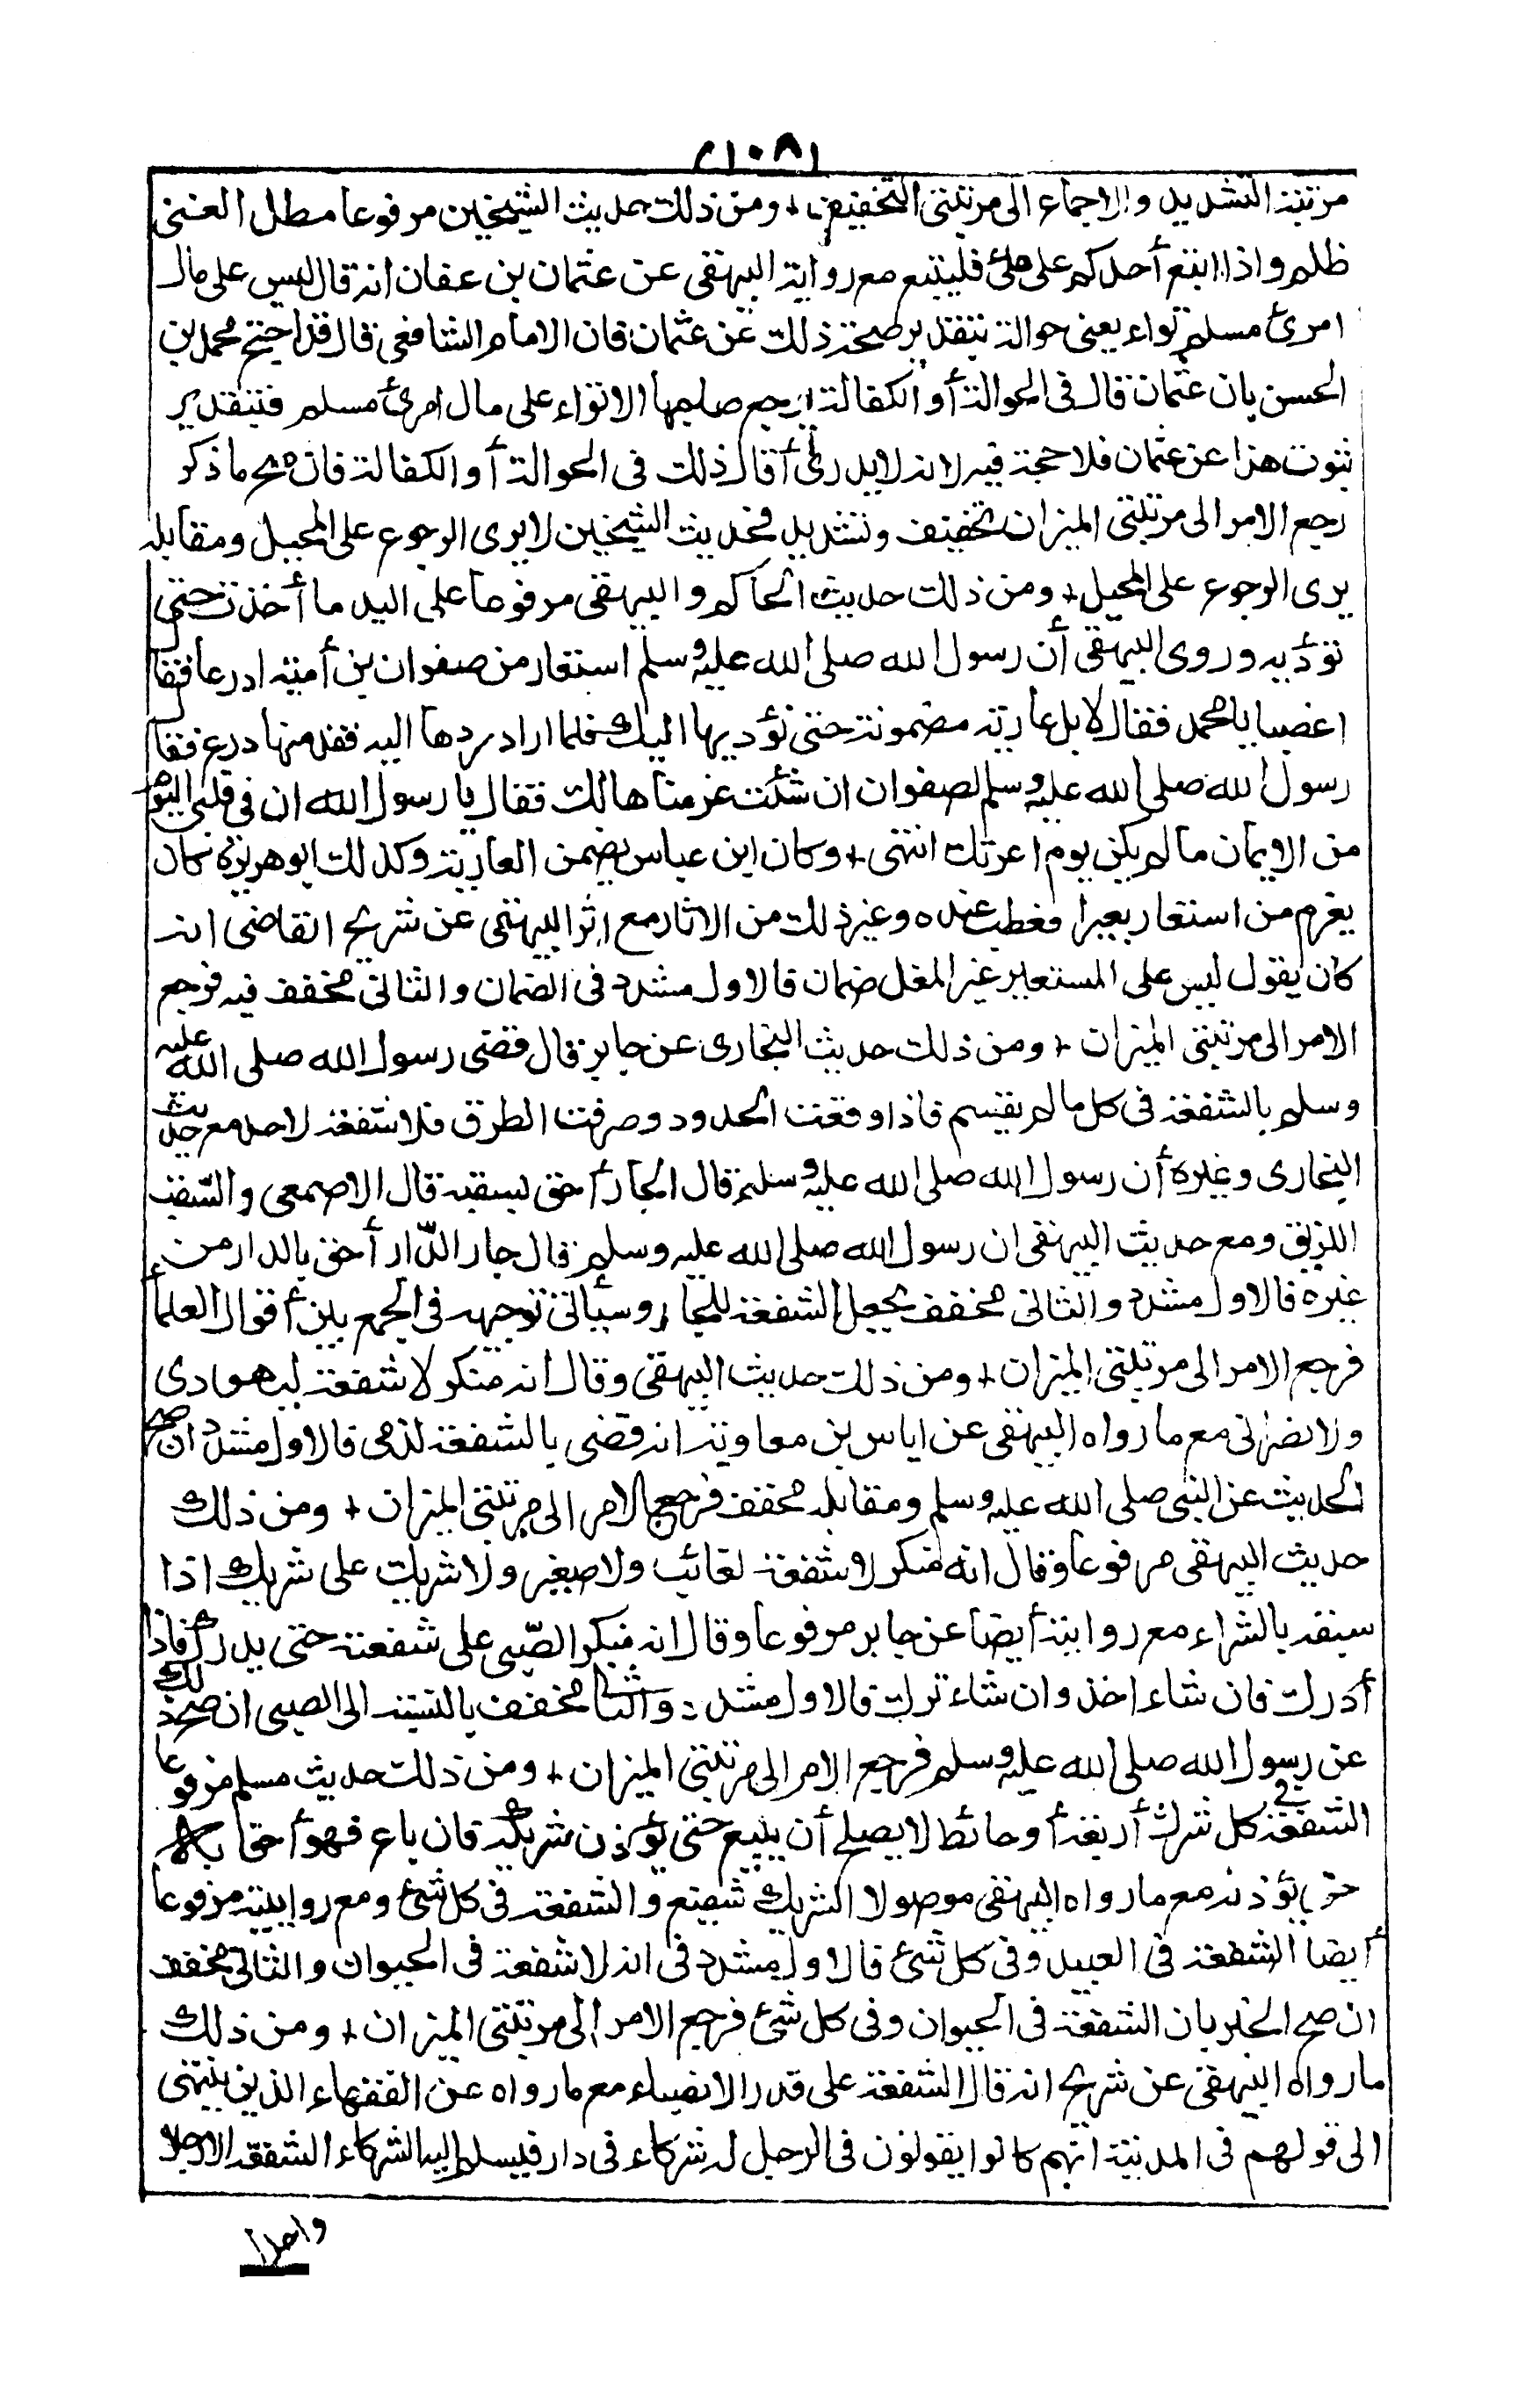 (١٠٨)
مرتبة التشديد والاجماع الى مرتبتى التخفيف + ومن ذلك حديث الشيخين مرفوعا مطل الغنى
ظلم واذا اتبع أحدكم على ملئ فليتبع مع رواية البيهقى عن عثمان بن عفان انه قال ليس على مال
امرئ مسلم تواء يعنى حوالة بتقدير صحة ذلك عن عثمان فان الامام الشافعى قال قد احتج محمد بن
الحسن بان عثمان قال فى الحوالة أو الكفالة يرجع صاحبها لا تواء على مال امرئ مسلم فبتقدير
ثبوت هذا عن عثمان فلا حجة فيه لانه لا يدرى أقال ذلك فى الحوالة أو الكفالة فان صح ما ذكر
رجع الامر الى مرتبتى الميزان تخفيف وتشديد فحديث الشيخين لا يرى الرجوع على المحيل ومقابله
يرى الرجوع على المحيل + ومن ذلك حديث الحاكم والبيهقى مرفوعا على اليد ما أخذت حتى
تؤديه وروى البيهقى أن رسول الله صلى الله عليه وسلم استعار من صفوان بن أمية ادرعا فقال
اغصبا يا محمد فقال لا بل عارية مضمونة حتى نؤديها اليك فلما اراد ردها اليه فقد منها درع فقال
رسول الله صلى الله عليه وسلم لصفوان ان شئت غرمناها لك فقال يا رسول الله ان فى قلبى اليوم
من الايمان ما لم يكن يوم اعرتك انتهى + وكان ابن عباس يضمن العارية وكذلك ابو هريرة كان
يغرم من استعار بعيرا فعطب عنده وغير ذلك من الاثار مع اثر البيهقى عن شريح القاضى انه
كان يقول ليس على المستعير غير المغل ضمان فالاول مشدد فى الضمان والثانى مخفف فيه فرجع
الامر الى مرتبتى الميزان + ومن ذلك حديث البخارى عن جابر قال قضى رسول الله صلى الله عليه
وسلم بالشفعة فى كل ما لم يقسم فاذا وقعت الحدود وصرفت الطرق فلا شفعة لاحد مع حديث
البخارى وغيره أن رسول الله صلى الله عليه وسلم قال الجار أحق بسقبه قال الاصمعى والسّقب
اللزيق ومع حديث البيهقى ان رسول الله صلى الله عليه وسلم قال جار الدّار أحق بالدار من
غيره فالاول مشدد والثانى مخفف بجعل الشفعة للجار وسيأتى توجيهه فى الجمع بين أقوال العلماء
فرجع الامر الى مرتبتى الميزان + ومن ذلك حديث البيهقى وقال انه منكر لا شفعة ليهودى
ولا نصرانى مع ما رواه البيهقى عن اياس بن معاوية انه قضى بالشفعة لذمى فالاول مشدد ان صح
الحديث عن النبى صلى الله عليه وسلم ومقابله مخفف فرجع الامر الى مرتبتى الميزان + ومن ذلك
حديث البيهقى مرفوعا وقال انه منكر لا شفعة لغائب ولا صغير ولا شريك على شريك اذا
سبقه بالشراء مع روايته أيضا عن جابر مرفوعا وقال انه منكر الصّبى على شفعته حتى يدرك فاذا
أدرك فان شاء اخذ وان شاء ترك فالاول مشدد والثانى مخفف بالنسبة الى الصبى ان صح ذلك
عن رسول الله صلى الله عليه وسلم فرجع الامر الى مرتبتى الميزان + ومن ذلك حديث مسلم مرفوعا
الشفعة فى كل شرك أربعة أو حائط لا يصلح أن يبيع حتى يؤذن شريكه فان باع فهو أحق به
حتى يؤذنه مع ما رواه البيهقى موصولا الشريك شفيع والشفعة فى كل شئ ومع روايته مرفوعا
أيضا الشفعة فى العبيد وفى كل شئ فالاول مشدد فى انه لا شفعة فى الحيوان والثانى مخفف
ان صح الخبر بان الشفعة فى الحيوان وفى كل شئ فرجع الامر الى مرتبتى الميزان + ومن ذلك
ما رواه البيهقى عن شريح انه قال الشفعة على قدر الانصباء مع ما رواه عن الفقهاء الذين ينتهى
الى قولهم فى المدينة انهم كانوا يقولون فى الرجل له شركاء فى دار فيسلم اليه الشركاء الشفعة الا رجلا
واحدا